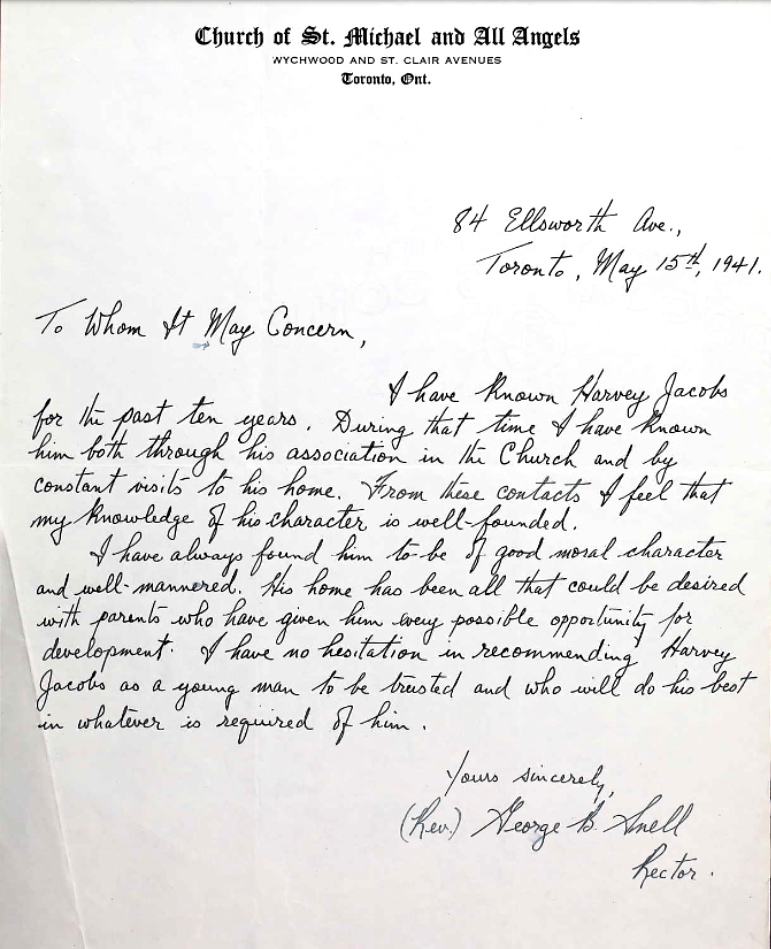 Church of St. Michael and All Angels
WYCHWOOD AND ST. CLAIR AVENUES
Toronto, Ont.
84 Ellsworth Ave.,
Toronto, May 15th, 1941.
To Whom It May Concern,
I have known Harvey Jacobs
for the past ten years. During that time I have known
him both through his association in the Church and by
constant visits to his home. From these contacts I feel that
my knowledge of his character is well-founded.
I have always found him to be of good moral character
and well-mannered. His home has been all that could be desired
with parents who have given him every possible opportunity for
development. I have no hesitation in recommending Harvey
Jacobs as a young man to be trusted and who will do his best
in whatever is required of him.
Yours sincerely,
(Rev.) George B. Snell
Rector.